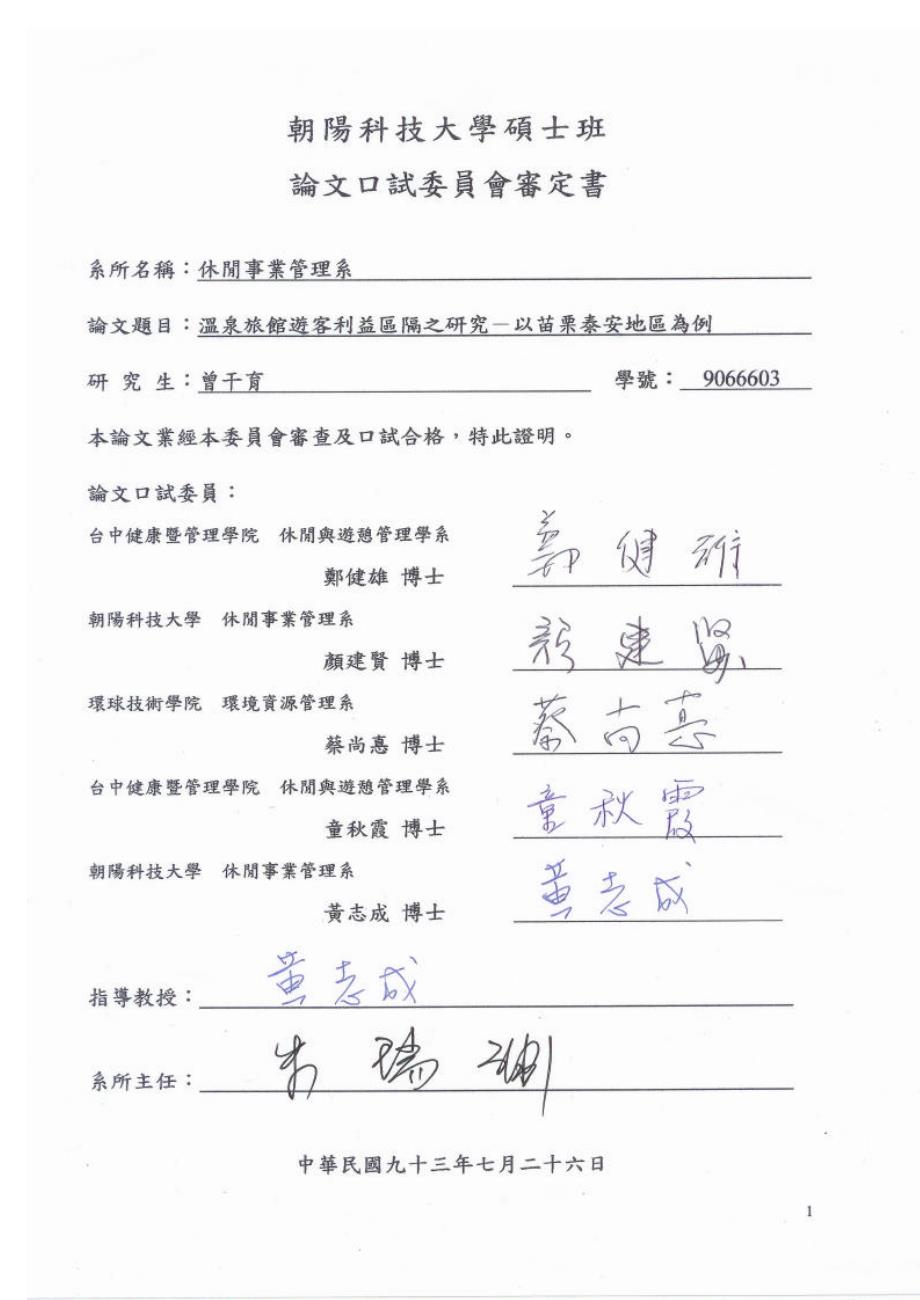 朝陽科技大學碩士班
論文口試委員會審定書
系所名稱：休閒事業管理系
論文題目：溫泉旅館遊客利益區隔之研究－以苗栗泰安地區為例
研 究 生：曾干育 學號： 9066603
本論文業經本委員會審查及口試合格，特此證明。
論文口試委員：
台中健康暨管理學院 休閒與遊憩管理學系
鄭健雄 博士 鄭健雄
朝陽科技大學 休閒事業管理系
顏建賢 博士 顏建賢
環球技術學院 環境資源管理系
蔡尚惪 博士 蔡尚惪
台中健康暨管理學院 休閒與遊憩管理學系
童秋霞 博士 童秋霞
朝陽科技大學 休閒事業管理系
黃志成 博士 黃志成
指導教授：黃志成
系所主任：朱瑞淵
中華民國九十三年七月二十六日
1